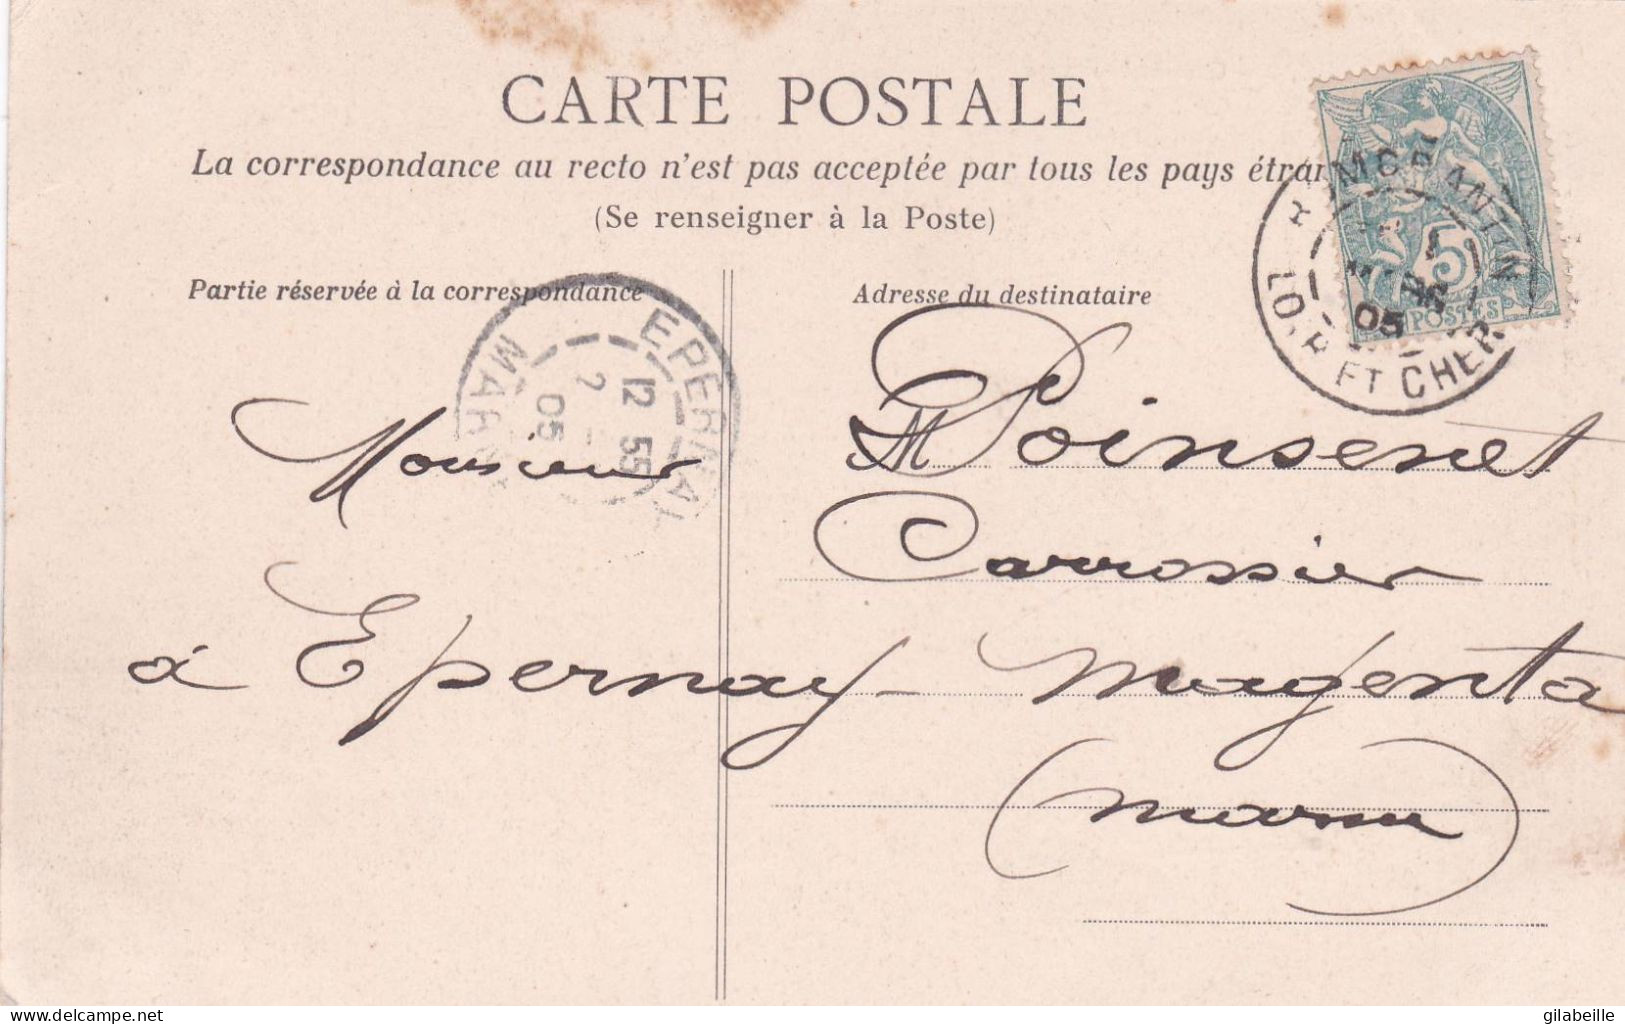 CARTE POSTALE
La correspondance au recto n'est pas acceptée par tous les pays étran
(Se renseigner à la Poste)
Partie réservée à la correspondance
Adresse du destinataire
EPERNAY
12 55
2
05
MARNE
ROMORANTIN
05
LOIR ET CHER
5
POSTES
Monsieur M Poinsenet
Carrossier
à Epernay - Magenta
(Marne)
www.delcampe.net
gilabeille